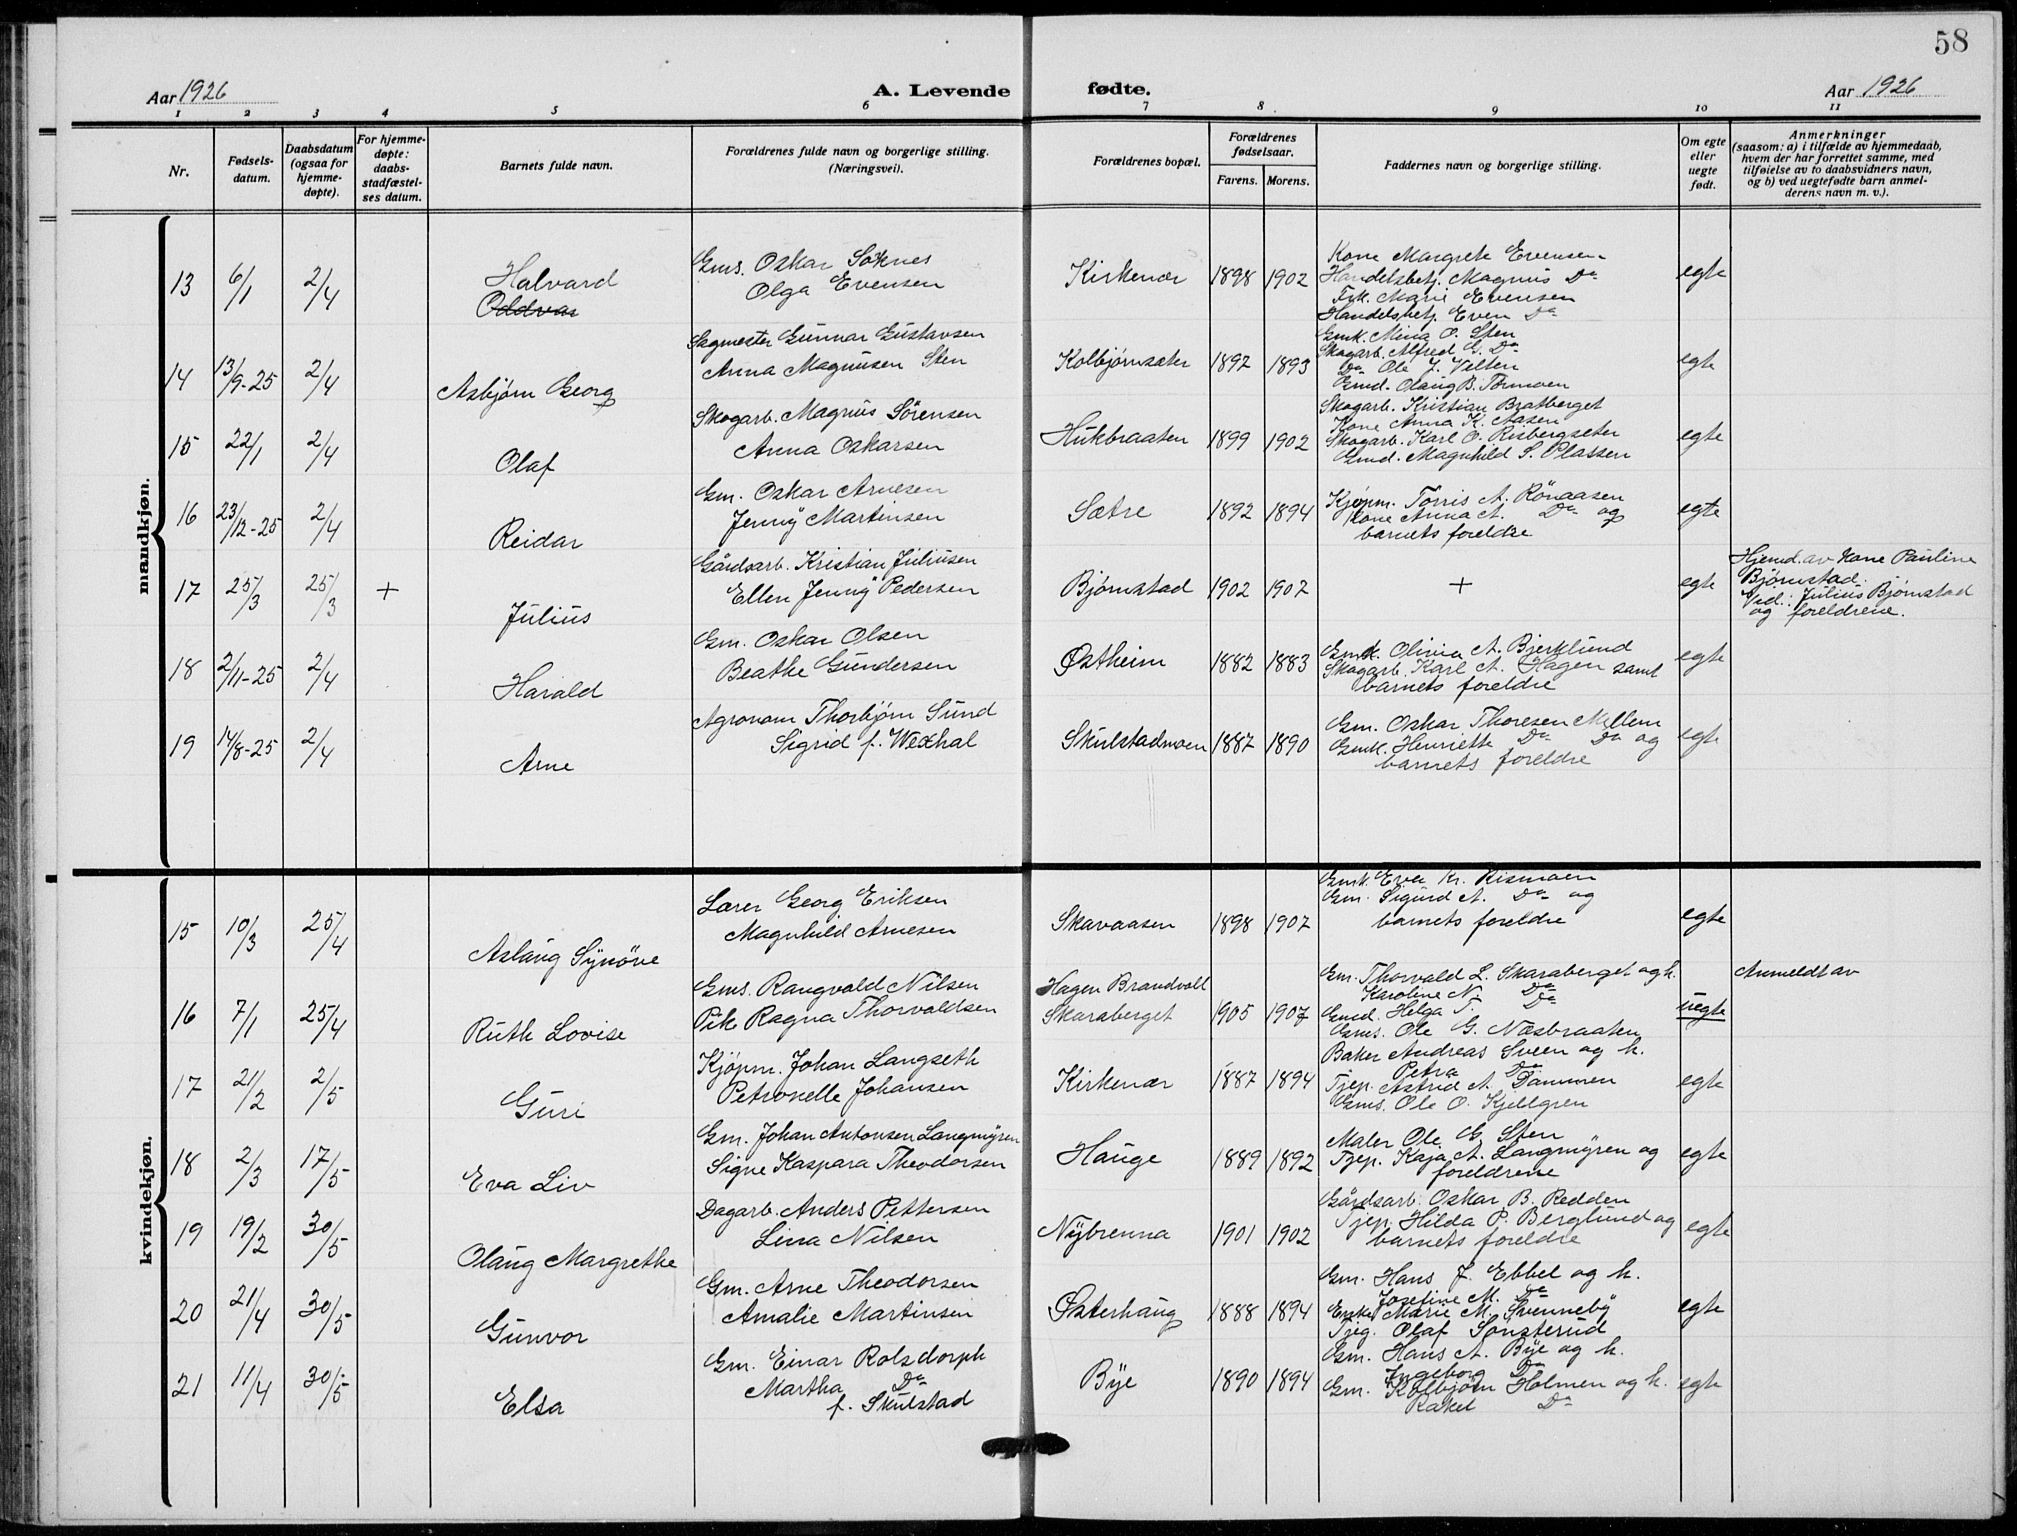 58
Aar 1926
A. Levende fødte.
Aar 1926
1 2 3 4 5 6 7 8 9 10 11
Nr.
Fødsels-
datum.
Daabsdatum
(ogsaa for
hjemme-
døpte).
For hjemme-
døpte:
daabs-
stadfæstel-
ses datum.
Barnets fulde navn.
Forældrenes fulde navn og borgerlige stilling.
(Næringsvei).
Forældrenes bopæl.
Forældrenes
fødselsaar.
Farens. Morens.
Faddernes navn og borgerlige stilling.
Om egte
eller
uegte
født.
Anmerkninger
(saasom: a) i tilfælde av hjemmedaab,
hvem der har forrettet samme, med
tilføielse av to daabsvidners navn,
og b) ved uegtefødte barn anmel-
derens navn m. v.).
mandkjøn.
13 6/1 2/4
Halvard
Oddvar
Gms. Oskar Soknes
Olga Evensen
Kirkenær 1898 1902
Kone Margrete Evensen
Handelsbetj. Magnus Do
Frk. Marie Evensen
Handelsbetj. Even Do
egte
14 13/9-25 2/4
Asbjørn Georg
Sagmester Gunnar Gustavsen
Anna Magnusen Sten
Kolbjørnsæter 1897 1893
Gmk. Mina O. Sten
Skogarb. Alfred G. Do
Do Ole J. Velten
Gmd. Olaug B. Tormoen
egte
15 22/1 2/4
Olaf
Skogarb. Magnus Sörensen
Anna Oskarsen
Hukbraaten 1899 1902
Skogarb. Kristian Bratberget
Kone Anna K. Aasen
Skogarb. Karl O. Risbergseter
Gmd. Magnhild S. Plassen
egte
16 23/12-25 2/4
Reidar
Gm. Oskar Arnesen
Jenny Martinsen
Sætre 1892 1894
Kjøpm. Torris A. Rönaasen
Kone Anna A. Do og
barnets foreldre
egte
17 25/3 25/3 +
Julius
Gårdsarb. Kristian Juliusen
Ellen Jenny Pedersen
Bjørnstad 1902 1907
+
egte
Hjemd. av Kone Pauline
Bjørnstad.
Vid.: Julius Bjørnstad
og foreldrene.
18 2/11-25 2/4
Harald
Gm. Oskar Olsen
Beathe Gundersen
Østheim 1882 1883
Gmk. Olivia A. Bjerklund
Skogarb. Karl A. Hagen samt
barnets foreldre
egte
19 14/8-25 2/4
Arne
Agronom Thorbjørn Sund
Sigrid f. Wexhal
Skulstadmoen 1887 1890
Gm. Oskar Thoresen Mellem
Gmk. Henriette Do Do og
barnets foreldre
egte
kvindekjøn.
15 10/3 25/4
Aslaug Synöve
Lærer Georg Eriksen
Magnhild Arnesen
Skavaasen 1898 1907
Gmk. Eva Kr. Rismoen
Gm. Sigurd A. Do og
barnets foreldre
egte
16 7/1 25/4
Ruth Lovise
Gms. Rangvald Nilsen
Pik. Ragna Thorvaldsen
Hagen Brandvoll
Skaraberget 1905 1907
Gm. Thorvald L. Skaraberget og k.
Karoline N. Do
Gmd. Helga T. Do
Gms. Ole G. Næsbraaten
uegte
Anmeldt av
17 21/2 2/5
Guri
Kjöpm. Johan Langseth
Petronelle Johansen
Kirkenær 1887 1894
Baker Andreas Sveen og k.
Petra Do
Tjep. Astrid A. Dammen
Gms. Ole O. Kjellgren
egte
18 2/3 17/5
Eva Liv
Gm. Johan Antonsen Langmyren
Signe Kaspara Theodorsen
Hauge 1889 1892
Maler Ole G. Sten
Tjep. Kaja A. Langmyren og
foreldrene
egte
19 19/2 30/5
Olaug Margrethe
Dagarb. Anders Pettersen
Lina Nilsen
Nybrenna 1901 1902
Gårdsarb. Oskar B. Redden
Tjep. Hilda P. Berglund og
barnets foreldre
egte
20 21/4 30/5
Gunvor
Gm. Arne Theodorsen
Amalie Martinsen
Østerhaug 1888 1894
Gm. Hans J. Ebbel og k.
Josefine M. Do
Enke Marie M. Svenneby
Tjeg. Olaf Sönsterud
egte
21 11/4 30/5
Elsa
Gm. Einar Rolsdorph
Martha Do
f. Skulstad
Bye 1890 1894
Gm. Hans A. Bye og k.
Ingeborg Do
Gm. Kolbjørn Holmen og k.
Rakel Do
egte